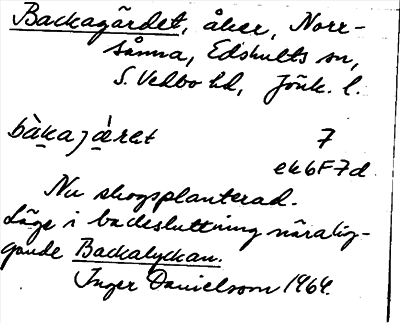 Backagärdet, åker, Norr-
sånna, Edshults sn,
S. Vedbo hd, Jönk. l.
bàkajǽrket 7
ek6F7d
Nu skogsplanterad.
Läge i backesluttning näralig-
gande Backalyckan.
Inger Danielsson 1964.